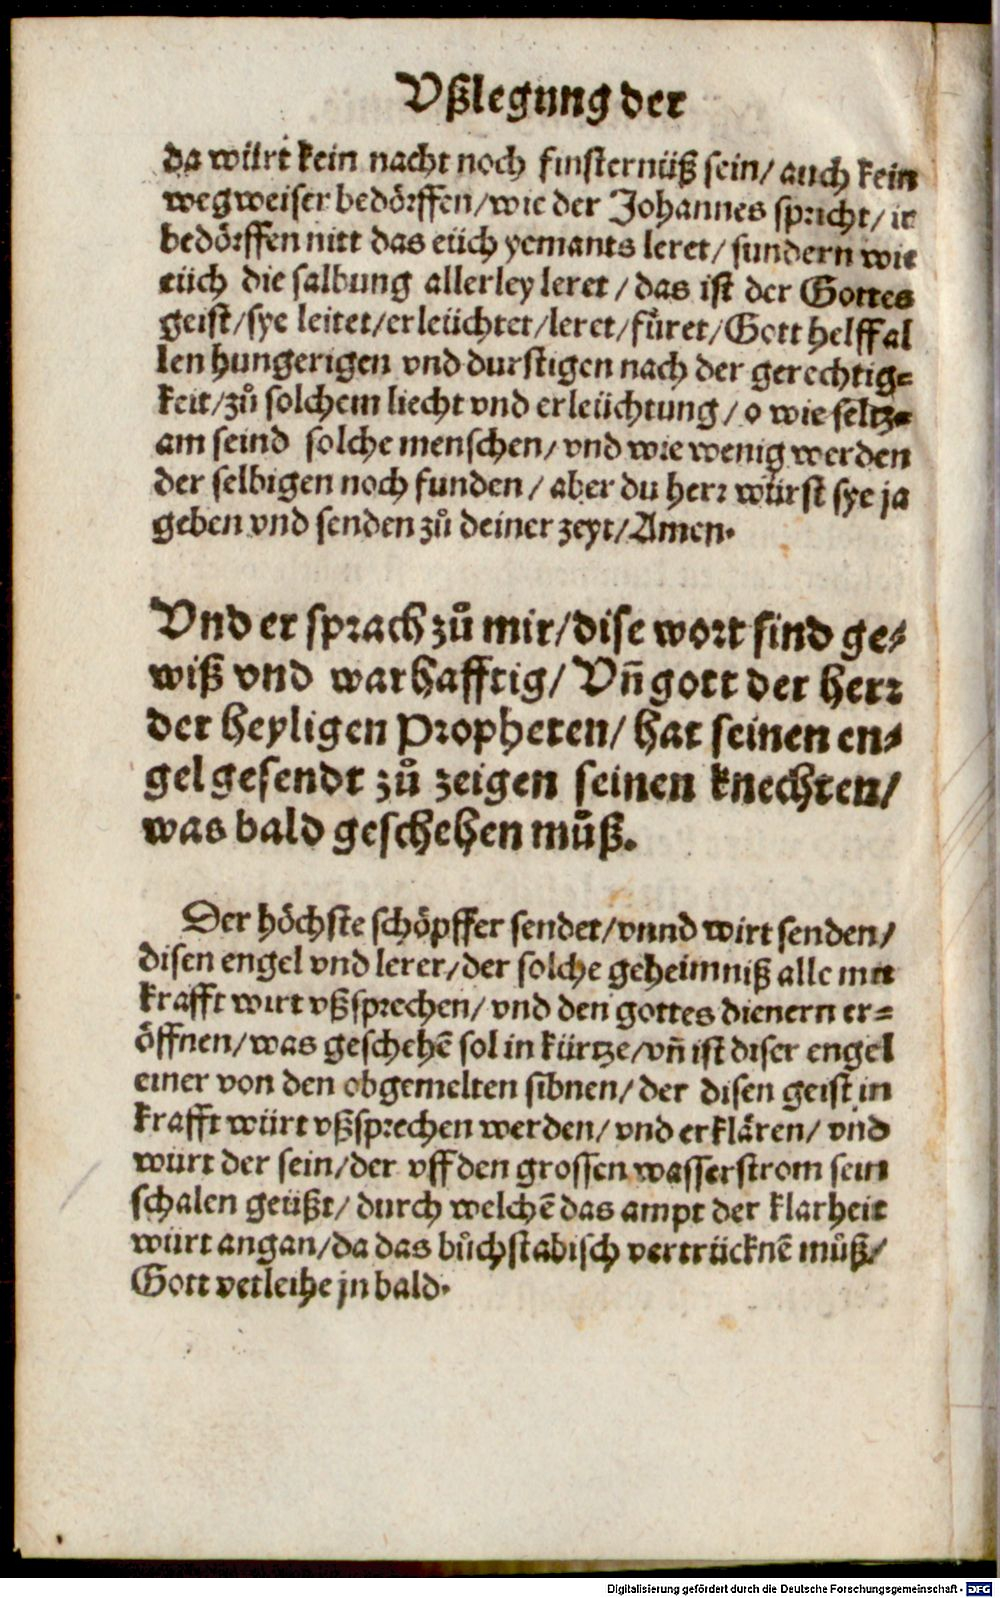 Vßlegung der
da würt kein nacht noch finsternüß sein/ auch kein
wegweiser bedörffen/wie der Johannes spricht/ ir
bedörffen nitt das eüch yemants leret/ sundern wie
eüch die salbung allerley leret / das ist der Gottes
geist/sye leitet/erleüchtet/leret/fůret/Gott helff al
len hungerigen vnd durstigen nach der gerechtig=
keit/zů solchem liecht vnd erleüchtung/ o wie seltz=
am seind solche menschen/ vnd wie wenig werden
der selbigen noch funden / aber du herr würst sye ja
geben vnd senden zů deiner zeyt/Amen.
Vnd er sprach zů mir/dise wort sind ge⸗
wiß vnd warhafftig/ Vñ gott der herr
der heyligen Propheten/ hat seinen en⸗
gel gesendt zů zeigen seinen knechten/
was bald geschehen můß.
Der höchste schöpffer sendet/vnnd wirt senden/
disen engel vnd lerer/der solche geheimniß alle mit
krafft wirt vßsprechen/ vnd den gottes dienern er=
öffnen/was geschehẽ sol in kürtze/vñ ist diser engel
einer von den obgemelten sibnen/ der disen geist in
krafft würt vßsprechen werden/ vnd erklären/ vnd
würt der sein/der vff den grossen wasserstrom sein
schalen geüßt/ durch welchẽ das ampt der klarheit
würt angan/da das bůchstabisch vertrücknẽ můß/
Gott verleihe jn bald.
Digitalisierung gefördert durch die Deutsche Forschungsgemeinschaft - DFG